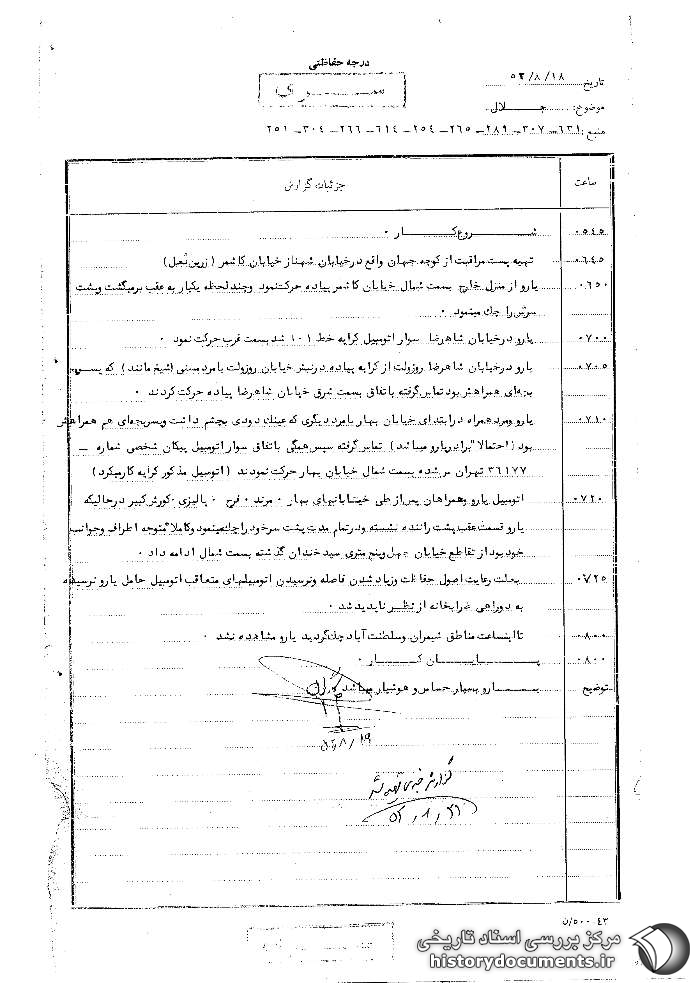 درجه حفاظتی
ســــری
تاریخ ۵۲/۸/۱۸
موضوع: جــــلال
منبع: ۶۳۱ــ ۳۰۷ــ ۲۸۹ــ ۲۶۵ــ ۲۵۴ــ ۶۱۴ــ ۲۶۶ــ ۳۰۴ــ ۲۵۱
ساعت جزئیات گزارش
۰۵۴۵ شــــروع کــــار ۰
۰۶۴۵ تهیه پست مراقبت از کوچه جهان واقع در خیابان شهناز خیابان کاشمر (زرین نعل)
۰۶۵۰ یارو از منزل خارج بسمت شمال خیابان کاشمر پیاده حرکت نمود و چند لحظه یکبار به عقب برمیگشت و پشت
سرش را چك مینمود ۰
۰۷۰۰ یارو در خیابان شاهرضا سوار اتومبیل کرایه خط ۱۰۱ شد بسمت غرب حرکت نمود ۰
۰۷۰۵ یارو در خیابان شاهرضا روزولت از کرایه پیاده در نبش خیابان روزولت با مرد مسنی (شیخ مانند) که پسر
بچه‌ای همراهش بود تماس گرفته باتفاق بسمت شرق خیابان شاهرضا پیاده حرکت کردند ۰
۰۷۱۰ یارو ومرد همراه در ابتدای خیابان بهار با مرد دیگری که عینك دودی بچشم داشت و پسر بچه‌ای هم همراهش
بود (احتمالا" برادر یارو میباشد) تماس گرفته سپس همگی باتفاق سوار اتومبیل پیکان شخصی شماره ــ
۳۶۱۷۷ تهران س شده بسمت شمال خیابان بهار حرکت نمودند (اتومبیل مذکور کرایه کار میکرد)
۰۷۲۰ اتومبیل یارو و همراهان پس از طی خیابانهای بهار ۰ مرند ۰ فرح ۰ پالیزی ۰ کورش کبیر در حالیکه
یارو قسمت عقب پشت راننده نشسته و در تمام مدت پشت سر خود را چك مینمود و کاملا" متوجه اطراف و جوانب
خود بود از تقاطع خیابان چهل و پنج متری سید خندان گذشته بسمت شمال ادامه داد ۰
۰۷۲۵ بعلت رعایت اصول حفاظت و زیاد شدن فاصله و نرسیدن اتومبیلهای متعاقب اتومبیل حامل یارو نرسیده
به دوراهی ضرابخانه از نظر ناپدید شد ۰
۰۸۰۰ تا اینساعت مناطق شمیران و سلطنت آباد چك گردید یارو مشاهده نشد ۰
۰۸۰۰ پــــایــــان کــــار ۰
توضیح یــــارو بسیار حساس و هوشیار میباشد
۵۲/۸/۱۹
گزارش خبری تهیه شد
۵۲/۸/۲۱
۴۳ ۵۰۰/ن
مرکز بررسی اسناد تاریخی
historydocuments.ir